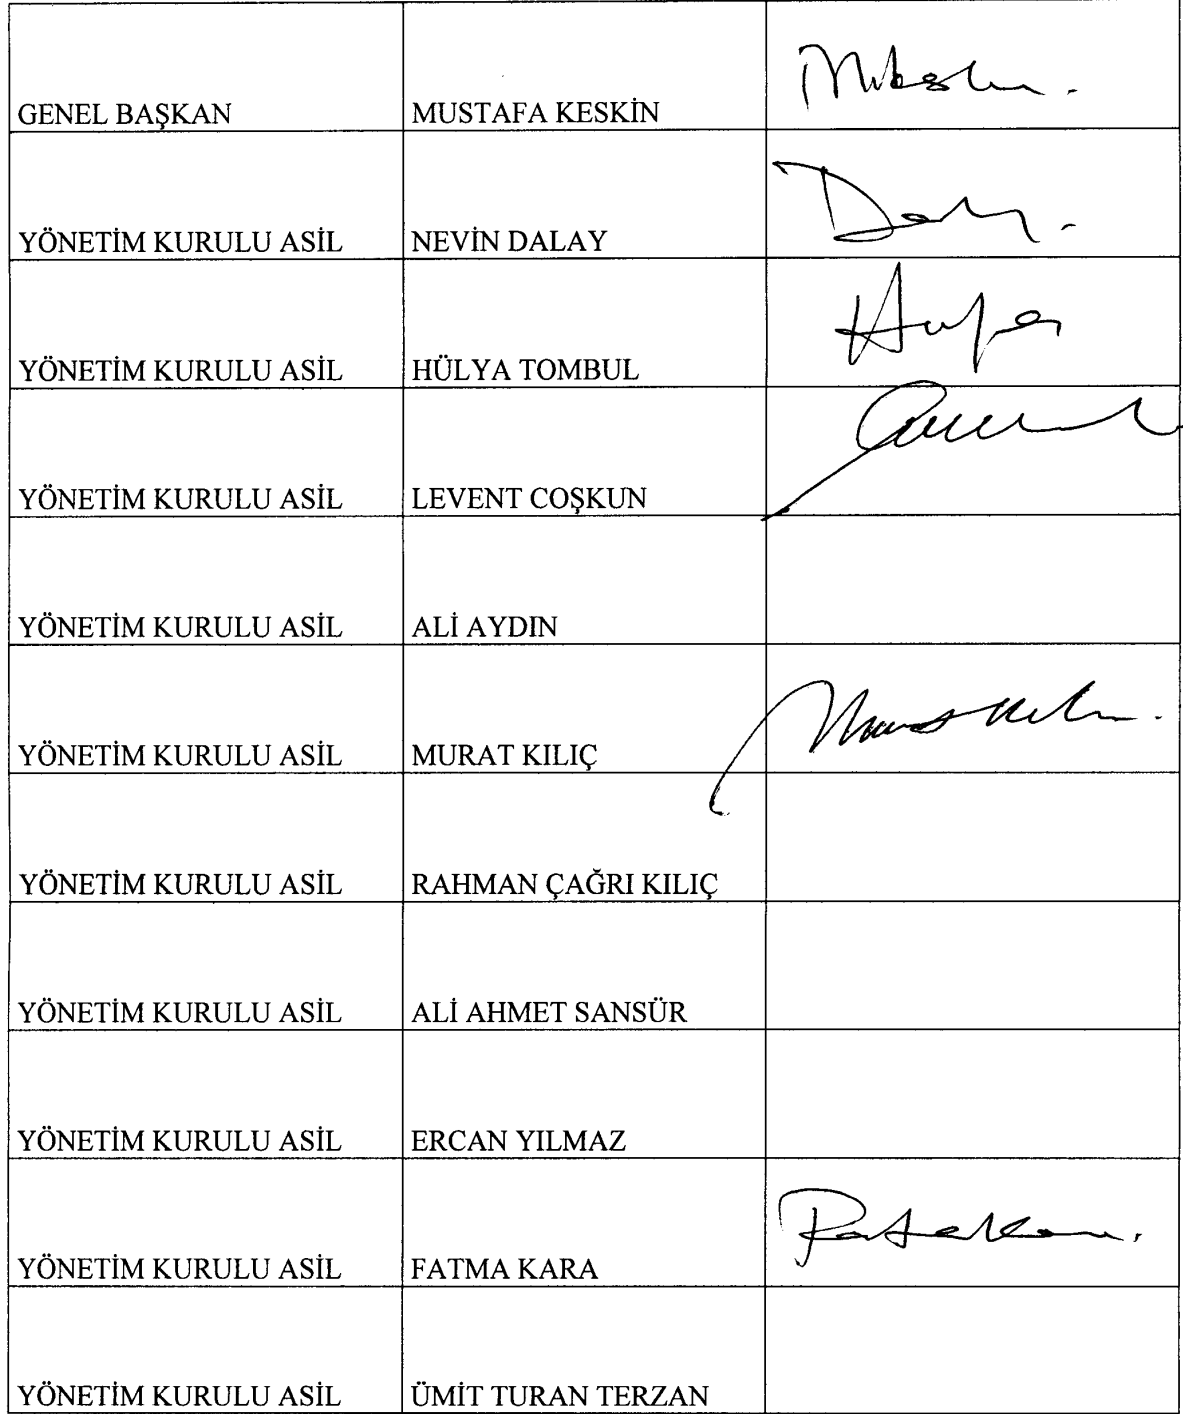 GENEL BAŞKAN MUSTAFA KESKİN
YÖNETİM KURULU ASİL NEVİN DALAY
YÖNETİM KURULU ASİL HÜLYA TOMBUL
YÖNETİM KURULU ASİL LEVENT COŞKUN
YÖNETİM KURULU ASİL ALİ AYDIN
YÖNETİM KURULU ASİL MURAT KILIÇ
YÖNETİM KURULU ASİL RAHMAN ÇAĞRI KILIÇ
YÖNETİM KURULU ASİL ALİ AHMET SANSÜR
YÖNETİM KURULU ASİL ERCAN YILMAZ
YÖNETİM KURULU ASİL FATMA KARA
YÖNETİM KURULU ASİL ÜMİT TURAN TERZAN